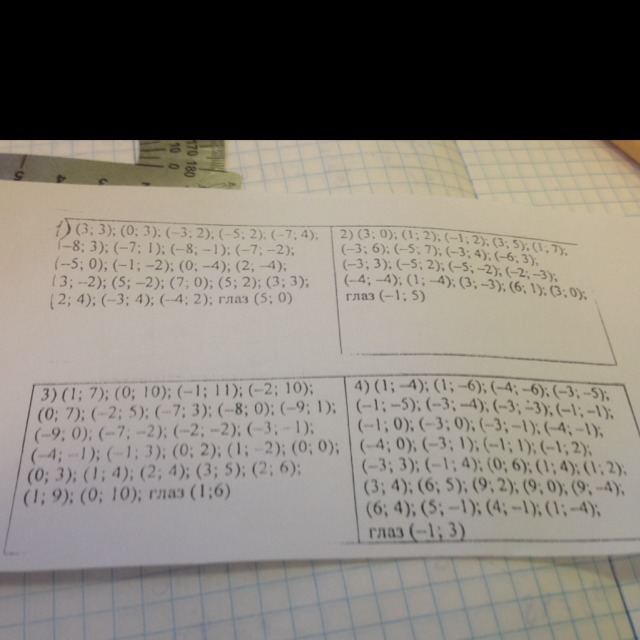 1) (3; 3); (0; 3); (−3; 2); (−5; 2); (−7; 4);
−8; 3); (−7; 1); (−8; −1); (−7; −2);
(−5; 0); (−1; −2); (0; −4); (2; −4);
(3; −2); (5; −2); (7; 0); (5; 2); (3; 3);
(2; 4); (−3; 4); (−4; 2); глаз (5; 0)
2) (3; 0); (1; 2); (−1; 2); (3; 5); (1; 7);
(−3; 6); (−5; 7); (−3; 4); (−6; 3);
(−3; 3); (−5; 2); (−5; −2); (−2; −3);
(−4; −4); (1; −4); (3; −3); (6; 1); (3; 0);
глаз (−1; 5)
3) (1; 7); (0; 10); (−1; 11); (−2; 10);
(0; 7); (−2; 5); (−7; 3); (−8; 0); (−9; 1);
(−9; 0); (−7; −2); (−2; −2); (−3; −1);
(−4; −1); (−1; 3); (0; 2); (1; 2); (0; 0);
(0; 3); (1; 4); (2; 4); (3; 5); (2; 6);
(1; 9); (0; 10); глаз (1; 6)
4) (1; −4); (1; −6); (−4; −6); (−3; −5);
(−1; −5); (−3; −4); (−3; −3); (−1; −1);
(−1; 0); (−3; 0); (−3; −1); (−4; −1);
(−4; 0); (−3; 1); (−1; 1); (−1; 2);
(−3; 3); (−1; 4); (0; 6); (1; 4); (1; 2);
(3; 4); (6; 5); (9; 2); (9; 0); (9; −4);
(6; 4); (5; −1); (4; −1); (1; −4);
глаз (−1; 3)